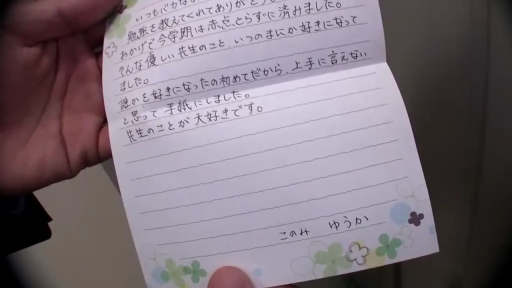 いつもバカな
勉強を教えてくれてありがとう
おかげで今学期は赤点とらずに済みました。
そんな優しい先生のこと、いつのまにか好きになって
ました。
誰かを好きになったの初めてだから、上手に言えない
と思って手紙にしました。
先生のことが大好きです。
このみ ゆうか